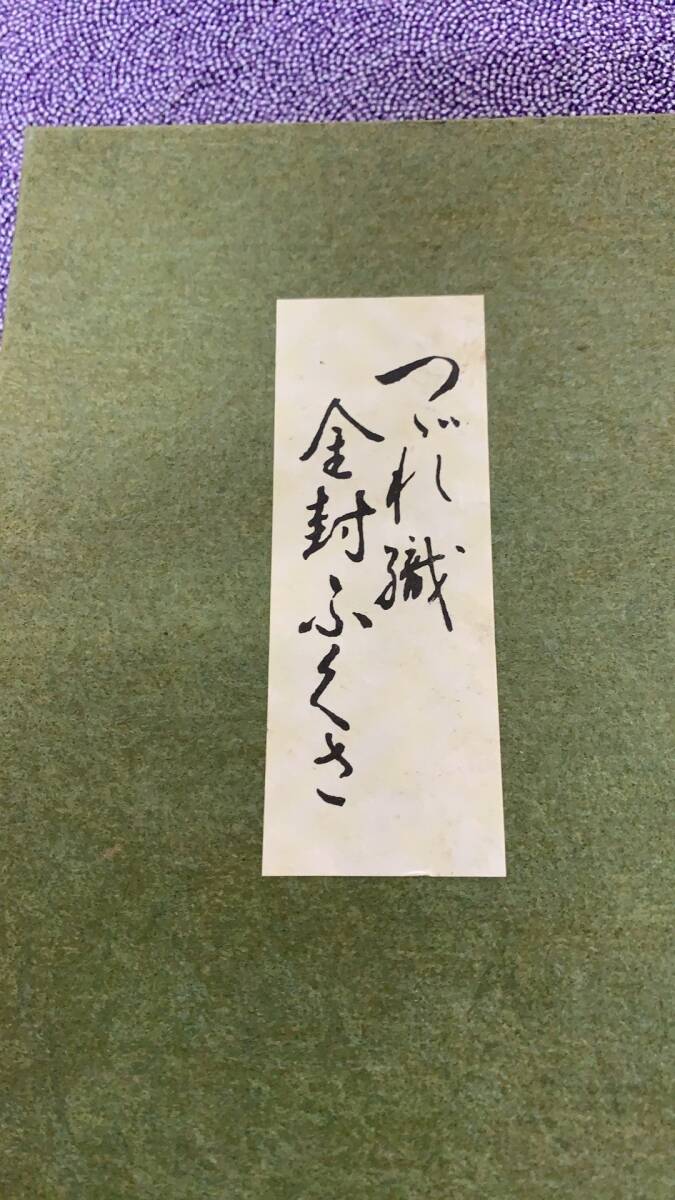 つづれ織
金封ふくさ